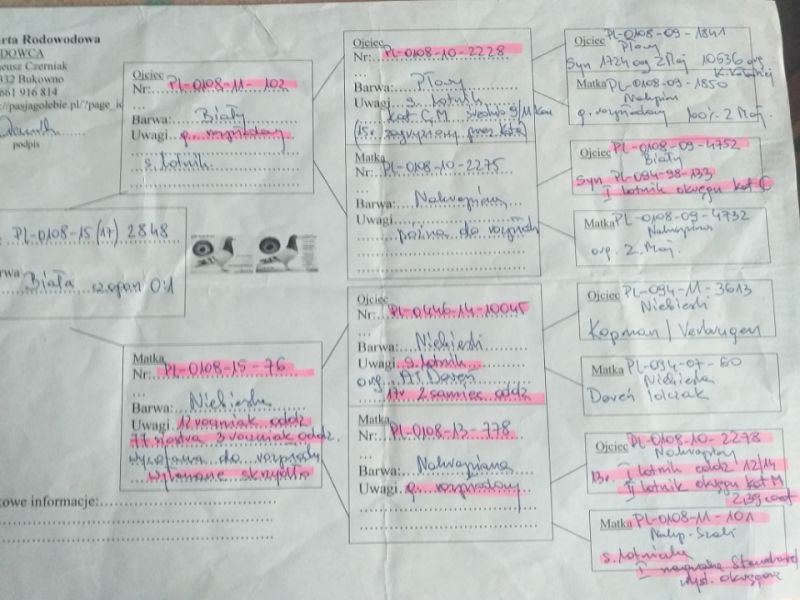 arta Rodowodowa
DOWCA
eusz Czerniak
332 Bukowno
661 916 814
://pasjagolebie.pl/?page_ic
podpis
PL-0108-15 (17) 2848
arwa
Biała szpan 0:1
kowe informacje:
Ojciec
Nr: PL-0108-11-102
...
Barwa: Biały
Uwagi g. rozpłodowy
s. lotnik
Matka
Nr: PL-0108-15-76
...
Barwa: Niebieska
Uwagi 12 rocznik oddz
77 siostra 3 rocznik oddz.
wycofana do rozpłodu
wyłamane skrzydło
Ojciec
Nr: PL-0108-10-2228
...
Barwa: Płowy
Uwagi s. lotnik
Kat C, M
(15r. zagryziony przez kota)
Matka
Nr: PL-0108-10-2275
...
Barwa: Nakrapiana
Uwagi
późna do rozpłodu
Ojciec
Nr: PL-0446-14-10045
...
Barwa: Niebieski
Uwagi s. lotnik
org.
17r 2 samiec oddz
Matka
Nr: PL-0108-13-778
...
Barwa: Nakrapiana
Uwagi g. rozpłodowy
Ojciec PL-0108-09-1841
Płowy
Syn 1724 og Z Maj 10636 org
Matka PL-0108-09-1850
Nakrapiana
g. rozpłodowy 100% Z. Maj.
Ojciec PL-0108-09-4752
Biały
Syn PL-094-98-133
I lotnik okręgu kat C
Matka PL-0108-09-4732
Nakrapiana
org. Z. Maj.
Ojciec PL-094-11-3613
Niebieski
Kopman / Verbruggen
Matka PL-094-07-80
Niebieska
Ojciec PL-0108-10-2278
Nakrapiany
13r. I lotnik oddz 12/14
II lotnik okręgu kat M
2,39 coef
Matka PL-0108-11-101
Nakrap-Szeki
s. lotniczka
I Standard
wyst. okręgowa